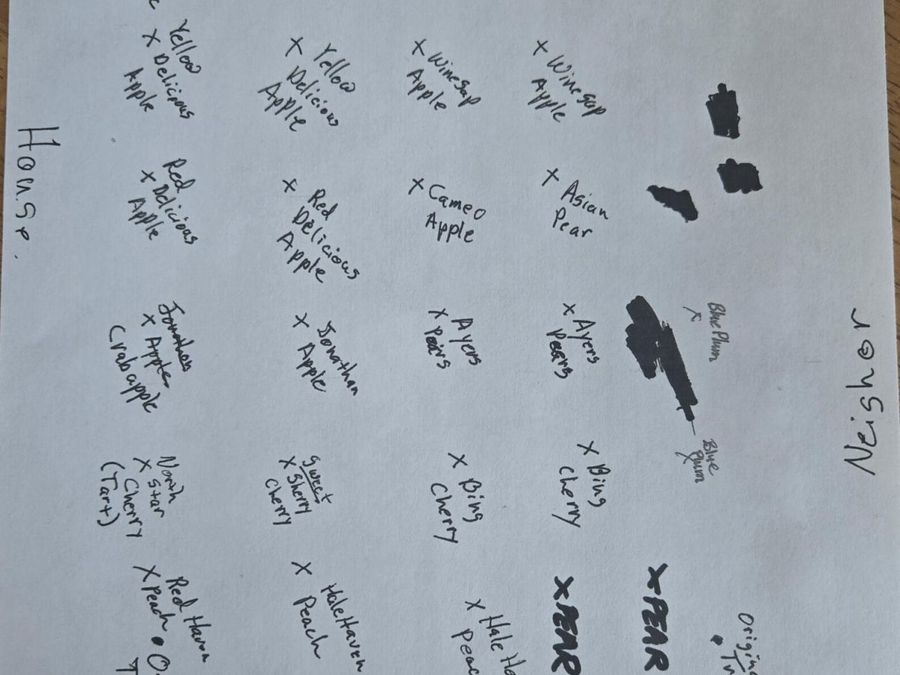 House.
Yellow
X Delicious
Apple
X Yellow
Delicious
Apple
X Winesap
Apple
X Winesap
Apple
Red
X Delicious
Apple
X Red
Delicious
Apple
X Cameo
Apple
X Asian
Pear
Jonathan
X Apple
Crabapple
X Jonathan
Apple
Ayers
X Pears
X Ayers
Pears
Blue Plum
X
North
X Star
Cherry
(Tart)
Sweet
X Sherry
Cherry
X Bing
Cherry
X Bing
Cherry
Blue
Plum
X
Red Haven
X Peach
X HaleHaven
Peach
X Hale
X PEAR
X PEAR
Neighor